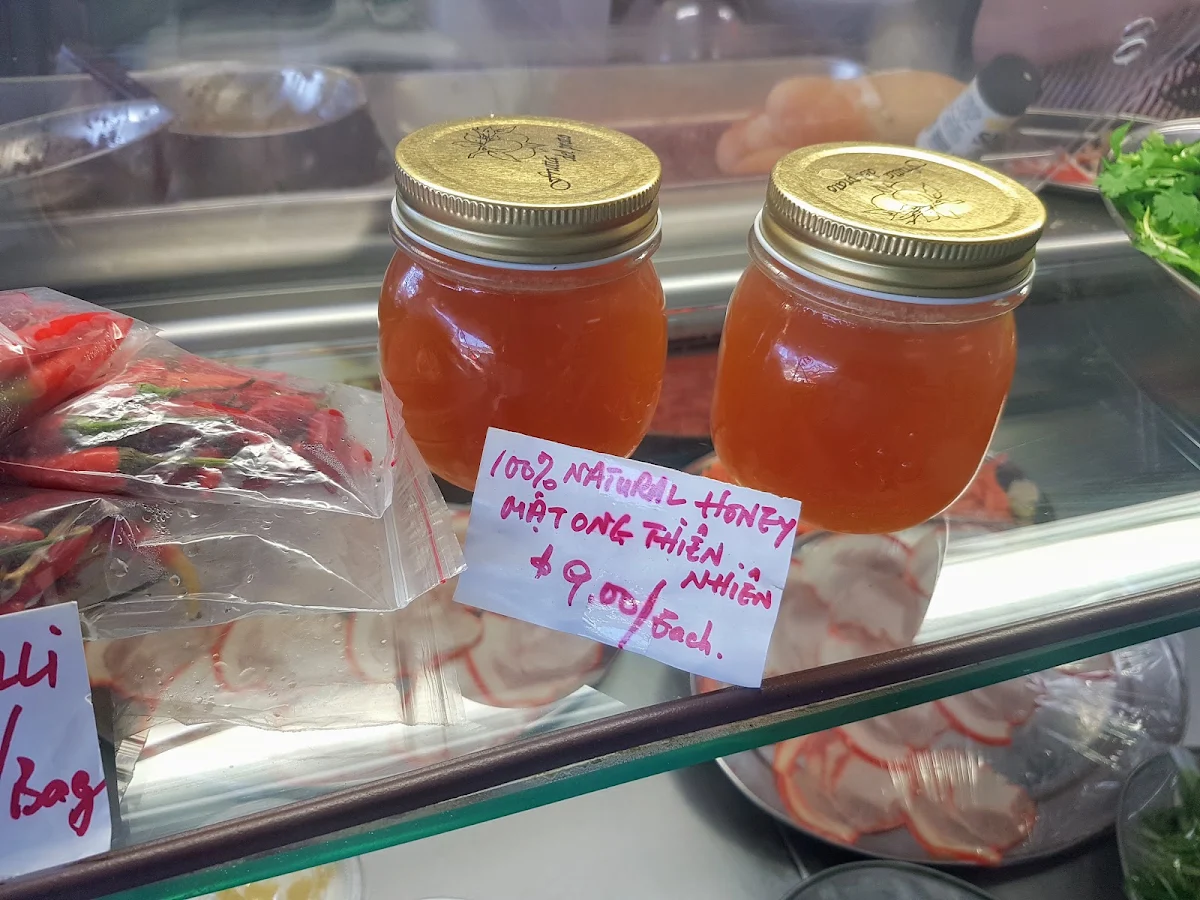 100% NATURAL HONEY
MẬT ONG THIÊN
NHIÊN
$9.00/Each.
/Bag